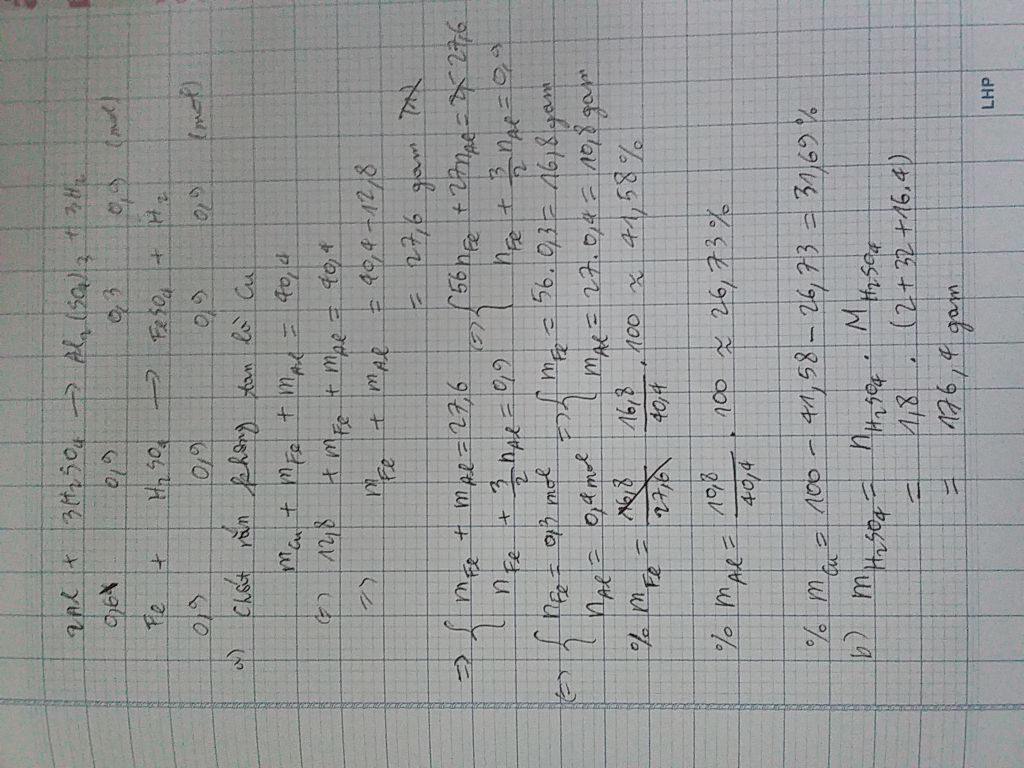 2Al + 3H2SO4 → Al2(SO4)3 + 3H2
0,6 0,9 0,3 0,9 (mol)
Fe + H2SO4 → FeSO4 + H2
0,9 0,9 0,9 0,9 (mol)
a) Chất rắn không tan là Cu
mCu + mFe + mAl = 40,4
(=) 12,8 + mFe + mAl = 40,4
=) mFe + mAl = 40,4 - 12,8
= 27,6 gam
=) { mFe + mAl = 27,6 (=) { 56nFe + 27nAl = 27,6
nFe + 3/2 nAl = 0,9 nFe + 3/2 nAl = 0,9
(=) { nFe = 0,3 mol =) { mFe = 56.0,3 = 16,8 gam
nAl = 0,4 mol mAl = 27.0,4 = 10,8 gam
% mFe = 16,8/27,6 16,8/40,4 . 100 ≈ 41,58%
% mAl = 10,8/40,4 . 100 ≈ 26,73%
% mCu = 100 - 41,58 - 26,73 = 31,69%
b) mH2SO4 = nH2SO4 . MH2SO4
= 1,8 . (2+32+16.4)
= 176,4 gam
LHP